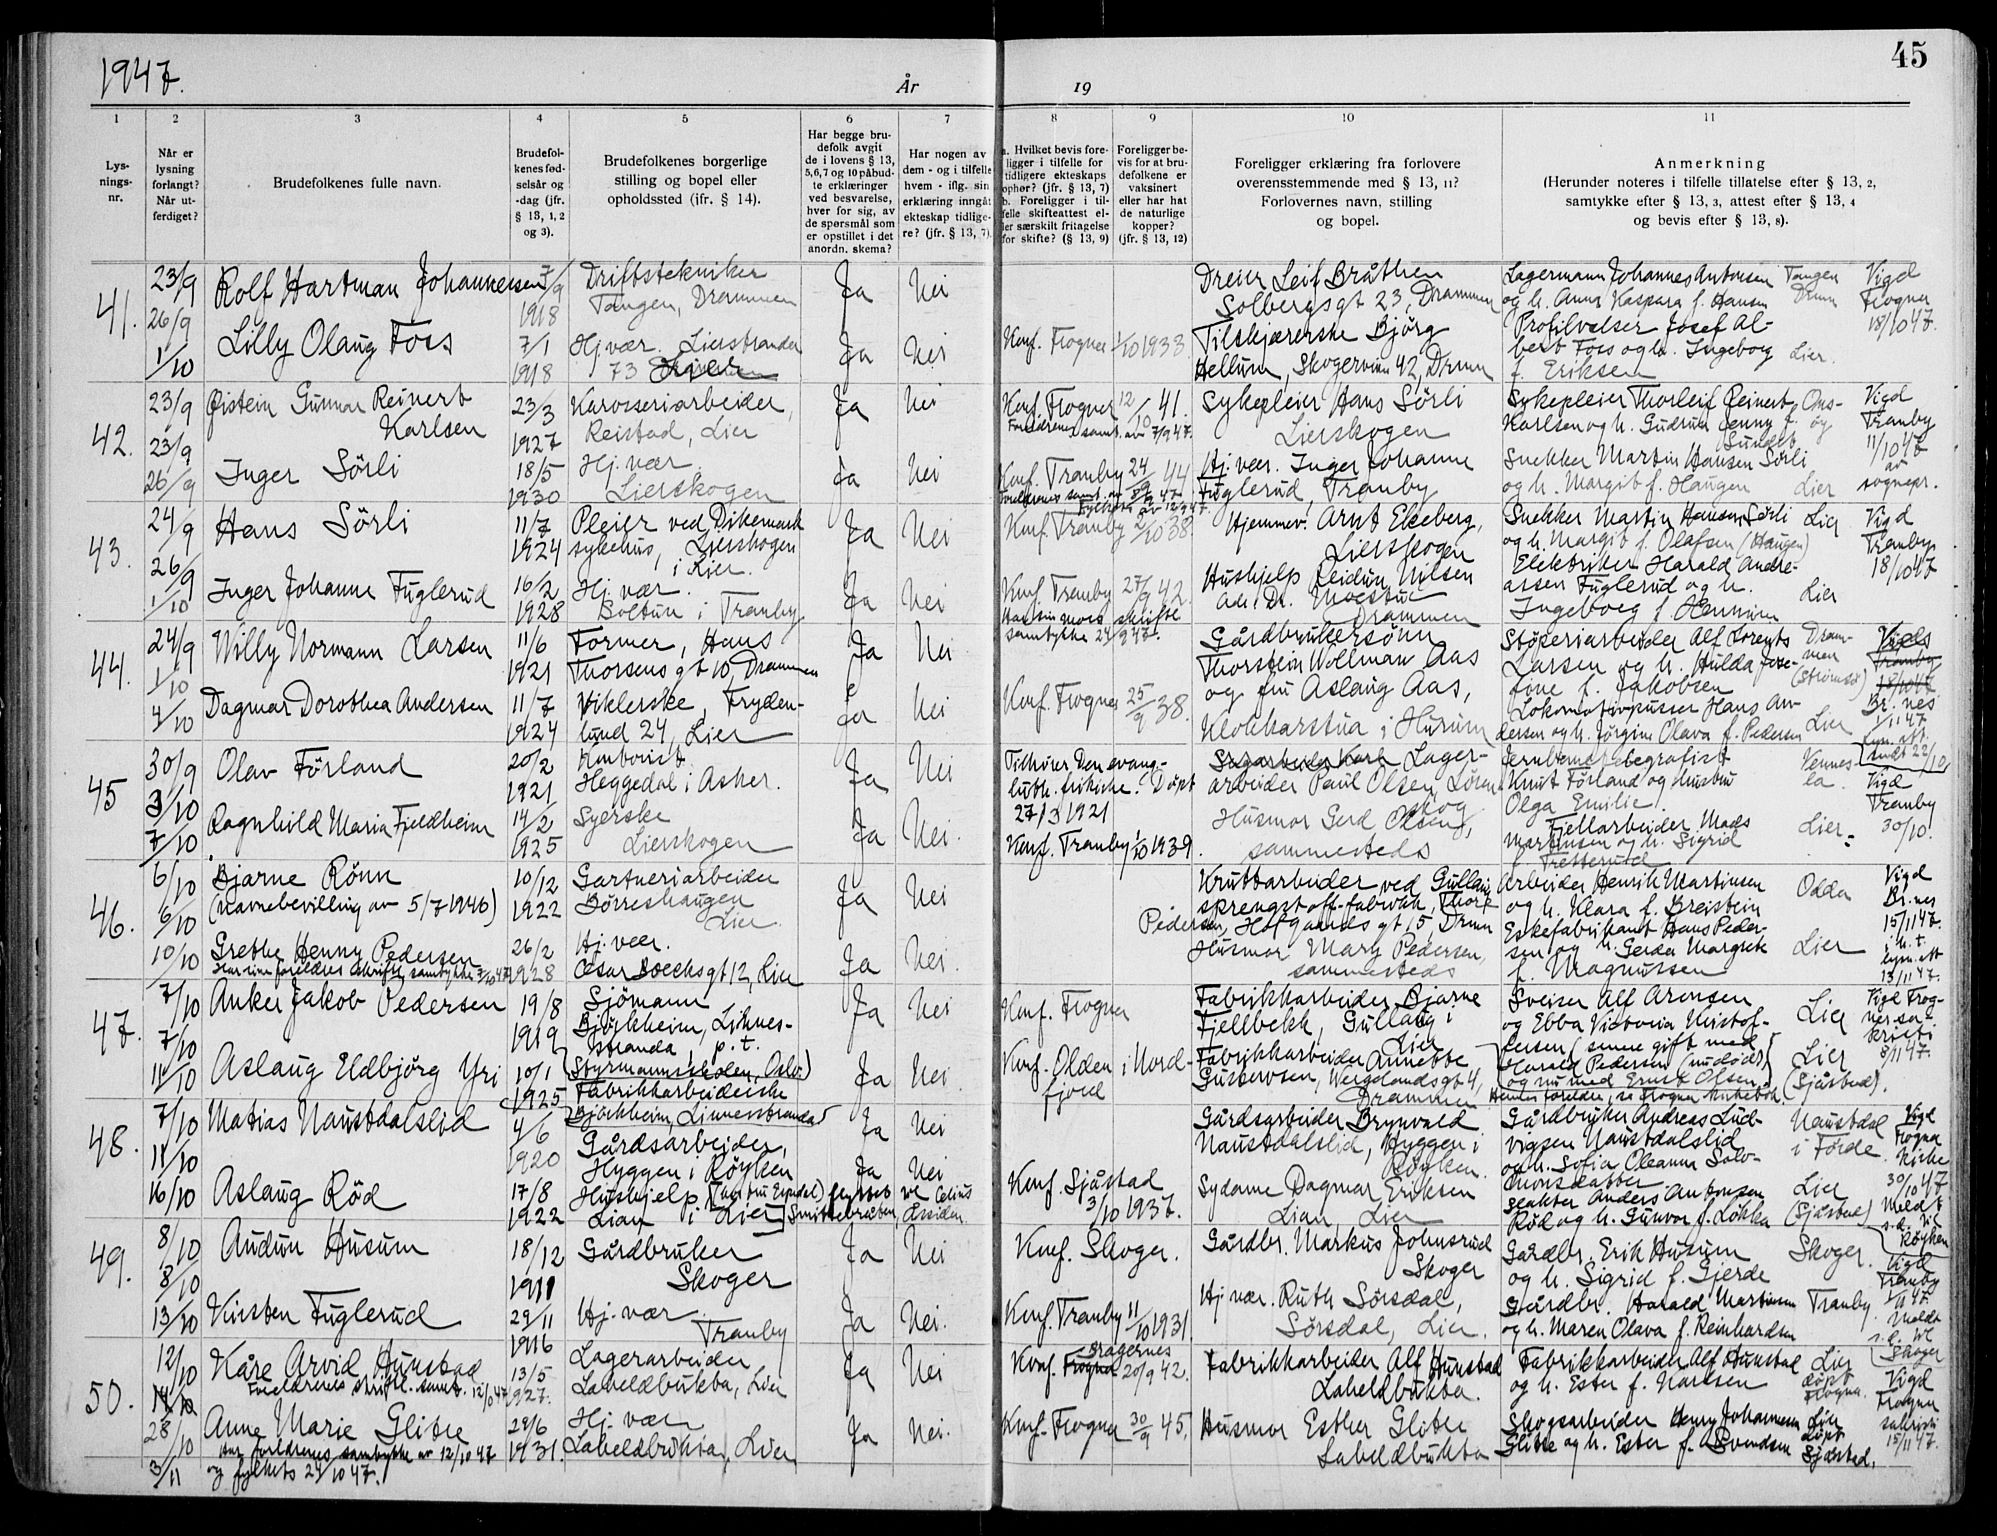 1947.
År
19
45
1
2
3
4
5
6
7
8
9
10
11
Lys-
nings-
nr.
Når er
lysning
forlangt?
Når ut-
ferdiget?
Brudefolkenes fulle navn.
Brudefol-
kenes fød-
selsår og
-dag (jfr.
§ 13, 1, 2
og 3).
Brudefolkenes borgerlige
stilling og bopel eller
opholdssted (jfr. § 14).
Har begge bru-
defolk avgit
de i lovens § 13,
5,6,7 og 10 påbud-
te erklæringer
ved besvarelse,
hver for sig, av
de spørsmål som
er opstillet i det
anordn. skema?
Har nogen av
dem - og i tilfelle
hvem - iflg. sin
erklæring inngåt
ekteskap tidlige-
re? (jfr. § 13, 7).
a. Hvilket bevis fore-
ligger i tilfelle for
tidligere ekteskaps
ophør? (jfr. § 13, 7)
b. Foreligger i til-
felle skifteattest el-
ler særskilt fritagelse
for skifte? (§ 13, 9)
Foreligger be-
vis for at bru-
defolkene er
vaksinert
eller har hat
de naturlige
kopper?
(jfr. § 13, 12)
Foreligger erklæring fra forlovere
overensstemmende med § 13, 11?
Forlovernes navn, stilling
og bopel.
Anmerkning
(Herunder noteres i tilfelle tillatelse efter § 13, 2,
samtykke efter § 13, 3, attest efter § 13, 4
og bevis efter § 13, 8).
41.
23/9
26/9
1/10
Rolf Hartman Johannesen
Lilly Olaug Foss
7/9
1918
7/1
1918
Driftstekniker
Tangen, Drammen
Hj.vær. Lierstranda
73
Ja
Ja
Nei
Nei
Konf. Frogner 1/10 1933.
Dreier Leif Bråthen
Solbergsgt 23, Drammen
Tilskjærerske Bjørg
Hellum, Skogerveien 42, Drmn
Lagermann Johannes Antonsen
og h. Anna Kaspara f. Hansen
Profilvalser Josef Al-
bert Foss og h. Ingeborg
f. Eriksen
Tangen
Drmn
Lier.
Vigd
Frogner
18/10 47.
42.
23/9
23/9
26/9
Øistein Gunnar Reinert
Karlsen
Inger Sörli
23/3
1927
18/5
1930
Karosseriarbeider,
Reistad, Lier
Hj.vær
Lierskogen
Ja
Ja
Nei
Nei
Konf. Frogner 12/10 41.
Foreldrenes samt. av 7/9 47.
Konf. Tranby 24/9 44
Sykepleier Hans Sörli
Lierskogen
Hj. vær. Inger Johanne
Fuglerud, Tranby
Sykepleier Thorleif Reinert
Karlsen og h. Gudrun Jenny f.
Sundet
Snekker Martin Hansen Sörli
og h. Margit f. Haugen
Lier
Vigd
Tranby
11/10 47
av
sognepr.
43.
24/9
26/9
1/10
Hans Sörli
Inger Johanne Fuglerud
11/7
1924
16/2
1928
Pleier ved Dikemark
sykehus, Lierskogen
i Lier.
Hj. vær.
Soltun i Tranby
Ja
Ja
Nei
Nei
Konf. Tranby 2/10 38.
Konf. Tranby 27/9 42.
Har sin mors skriftl.
samtykke 24/9 47.
Hjemmev. Arnt Ekeberg,
Lierskogen
Hushjelp Reidun Nilsen
Adr. Dr. Moestue
Drammen
Snekker Martin Hansen Sörli
og h. Margit f. Olafsen (Haugen)
Elektriker Harald Andre-
assen Fuglerud og h.
Ingeborg f. Henriksen
Lier
Lier
Vigd
Tranby
18/10 47
44.
24/9
1/10
4/10
Willy Normann Larsen
Dagmar Dorothea Andersen
11/6
1921
11/7
1924
Former, Hans
Thorsensgt 10, Drammen
Viklerske, Fryden-
lund 24, Lier
Ja
Ja
Nei
Nei
Konf. Frogner 25/9 38.
Gårdbrukersønn
Thorstein Wollman Aas
og fru Aslaug Aas,
Klokkarstua i Hurum
Støperiarbeider Alf Lorents
Larsen og h. Hulda Jose-
fine f. Jakobsen
Lokomotivpusser Hans An-
dersen og h. Jørgine Olava f. Pedersen
Dram-
men
(Strømsø)
Lier
Vigd
Tranby
18/10 47
Br.nes
1/11 47
lysn. att.
sendt 22/10
45
30/9
3/10
7/10
Olav Förland
Ragnhild Maria Fjeldheim
20/2
1921
14/2
1925
Heggedal i Asker
Syerske
Lierskogen
Ja
Ja
Nei
Nei.
Tilhører Den evang-
luth. frikirke. Døpt
27/3 1921
Konf. Tranby 1/10 1939.
Lager-
arbeider Paul Olsen, Lieren
skog
Husmor Gerd Olsen,
sammesteds
Knut Förland og hustru
Olga Emilie.
Fjellarbeider Mads
Martinsen og h. Sigrid
f. Tretterud
Vennes-
la.
Lier.
Vigd
Tranby
30/10.
46.
6/10
6/10
10/10
Bjarne Rönn
(navnebevilling av 5/7 1946)
Grethe Henny Pedersen
Har sine foreldres skriftl. samtykke 7/10 47
10/12
1922
26/2
1928
Gartneriarbeider
Börreshaugen
Lier
Hj. vær.
Cesar Boecksgt 12, Lier
Ja
Ja
Nei
Nei.
Kruttarbeider ved Gullaug
sprengstoff-fabrikk, Thore
Pedersen, Hofgaardsgt 15 Drmn
Husmor Mary Pedersen,
sammesteds
Arbeider Henrik Martinsen
og h. Klara f. Breistein
Eskefabrikant Hans Peder-
sen og h. Gerda Margrete
f. Magnussen
Odda
Lier
Vigd
Br.nes
15/11 47.
lysn. att
13/11 47.
47.
7/10
7/10
11/10
Anker Jakob Pedersen
Aslaug Eldbjörg Yri
19/8
1919
10/1
1925
Sjömann
Björkheim, Linnes-
stranda, p.t.
Styrmannsskolen, Oslo
Fabrikkarbeiderske
Björkheim, Linnesstranda
Ja
Ja
Nei
Nei.
Konf. Frogner
Konf. Olden i Nord-
fjord
Fabrikkarbeider Bjarne
Fjellbekk, Gullaug i
Lier
Fabrikkarbeider Annette
Gustavsen, Wergelandsgt 4,
Drammen
Sveiser Alf Arensen
og Ebba Victoria Kristof-
fersen (senere gift med
Harald Pedersen (nu død)
og nu med Ernst Olsen
Lier
Lier
(Sjåstad).
Vigd Frog-
ner sa-
kristi
8/11 47.
48.
7/10
11/10
16/10
Matias Naustdalslid
Aslaug Röd
4/6
1920
17/8
1922
Gårdsarbeider,
Hyggen i Röyken
Hushjelp
Lian i Lier
Ja
Ja
Nei
Nei
Konf. Sjåstad
3/10 1937.
Gårdsarbeider Brynvald
Naustdalslid, Hyggen i
Röyken.
Sydame Dagmar Eriksen
Lian, Lier
Gårdbruker Andreas Lud-
vigsen Naustdalslid
og h. Sofia Oleanna Salo-
monsdatter
Slakter Anders Antonsen
Röd og h. Gunvor f. Lökka
Naustdal
i Förde.
Lier
(Sjåstad)
Vigd
Frogner
kirke
30/10 47
Meldt
s.d. til
Röyken
49.
8/10
8/10
13/10
Audun Husum
Kirsten Fuglerud
18/12
1911
29/11
1916
Gårdbruker
Skoger
Hj. vær
Tranby
Ja
Ja
Nei
Nei.
Konf. Skoger.
Konf. Tranby 11/10 1931.
Gårdbr. Markus Johnsrud
Skoger
Hj vær. Ruth Sörsdal,
Sörsdal, Lier.
Gårdbr. Erik Husum
og h. Sigrid f. Gjerde
Gårdbr. Harald Martinsen
og h. Maren Olava f. Reinhardsen
Skoger.
Tranby.
Vigd
Tranby
1/11 47.
Meldt
s.d. til
Skoger
50.
12/10
14/10
28/10
3/11
Kåre Arvid Hunstad
Foreldrenes skriftl. samt. 12/10 47
Anne Marie Glitre
Har foreldrenes samtykke av 12/10 47
og fylkets 24/10 47.
13/5
1927.
29/6
1931.
Lagerarbeider
Laheldbukta, Lier
Hj. vær
Laheldbukta, Lier
Ja
Ja
Nei
Nei.
Bragernes
Konf. Frogner 20/9 42.
Konf. Frogner 30/9 45.
Fabrikkarbeider Alf Hunstad
Laheldbukta.
Husmor Esther Glitre
Laheldbukta
Fabrikkarbeider Alf Hunstad
og h. Ester f. Karlsen
Skogsarbeider Henry Johannesen
Glitre og h. Ester f. Svendsen
Lier
döpt
Frogner.
Lier
döpt
Sjåstad.
Vigd
Frogner
sakristi
15/11 47.